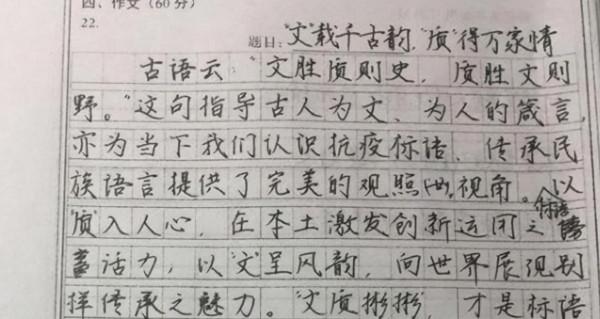 四、作文（60分）
22.
题目："文"载千古韵，"质"得万家情
古语云："文胜质则史，质胜文则
野。"这句指导古人为文、为人的箴言，
亦为当下我们认识抗疫标语、传承民
族语言提供了完美的观照视角。以
"质"入人心，在本土激发创新运用之
标语
活力，以"文"呈风韵，向世界展现别
样传承之魅力。"文质彬彬"，才是标语